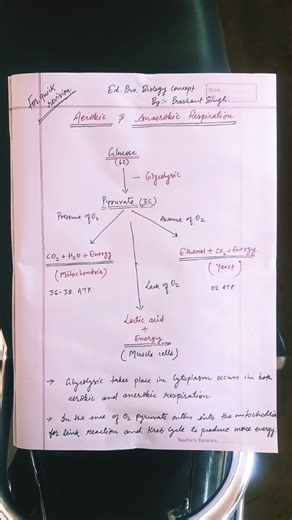 For quik
revision
Ed. Bro. Biology concept
By:- Prashant Singh.
Aerobic & Anaerobic Respiration
Glucose
(6C)
Glycolysis
Pyruvate (3C)
Presence of O2
Absence of O2
CO2 + H2O + Energy
(Mitochondria)
36-38 ATP
Ethanol + CO2 + Energy
(Yeast)
02 ATP
Lack of O2
Lactic acid
+
Energy
(Muscle cells)
→ Glycolysis takes place in Cytoplasm occurs in both
aerobic and anerobic respiration.
→ In the of O2 pyruvate enters into the mitochondria
for link reaction and Kreb Cycle to produce more energy.
Teacher's Signature